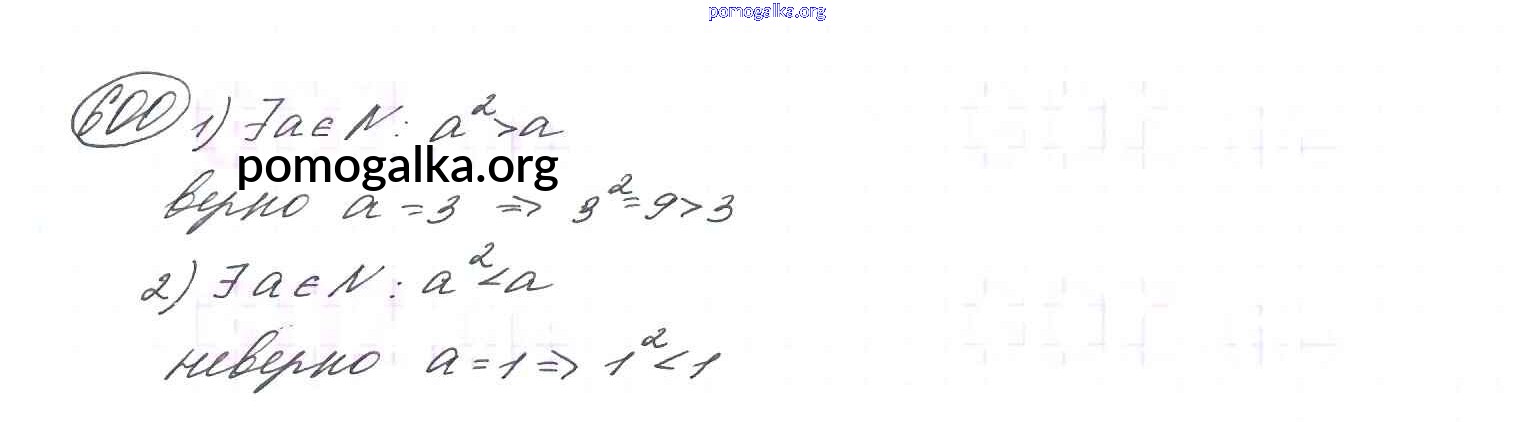 pomogalka.org
600 1) ∃a∈N: a²>a
pomogalka.org
верно a=3 => 3²=9>3
2) ∃a∈N: a²<a
неверно a=1=> 1²<1